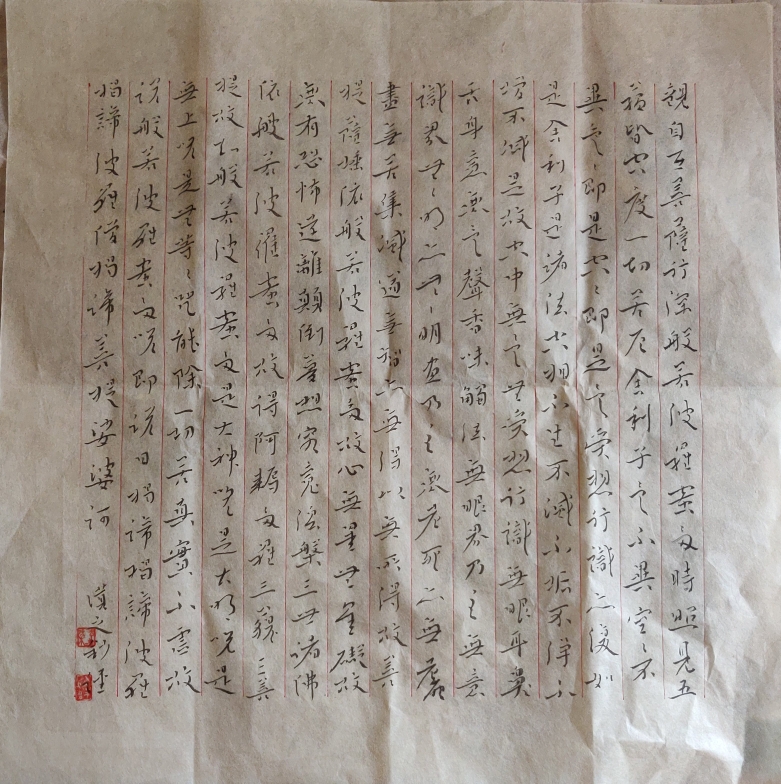 觀自在菩薩行深般若波羅蜜多時照見五
蘊皆空度一切苦厄舍利子色不異空空不
異色色即是空空即是色受想行識亦復如
是舍利子是諸法空相不生不滅不垢不淨不
增不減是故空中無色無受想行識無眼耳鼻
舌身意無色聲香味觸法無眼界乃至無意
識界無無明亦無無明盡乃至無老死亦無老死
盡無苦集滅道無智亦無得以無所得故菩
提薩埵依般若波羅蜜多故心無罣無罣礙故
無有恐怖遠離顛倒夢想究竟涅槃三世諸佛
依般若波羅蜜多故得阿耨多羅三藐三菩
提故知般若波羅蜜多是大神咒是大明咒是
無上咒是無等等咒能除一切苦真實不虛故
說般若波羅蜜多咒即說曰揭諦揭諦波羅
揭諦波羅僧揭諦菩提娑婆訶